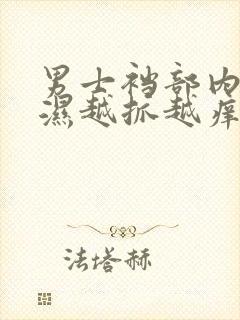 男士裆部内
濕越抓越痒
法塔赫